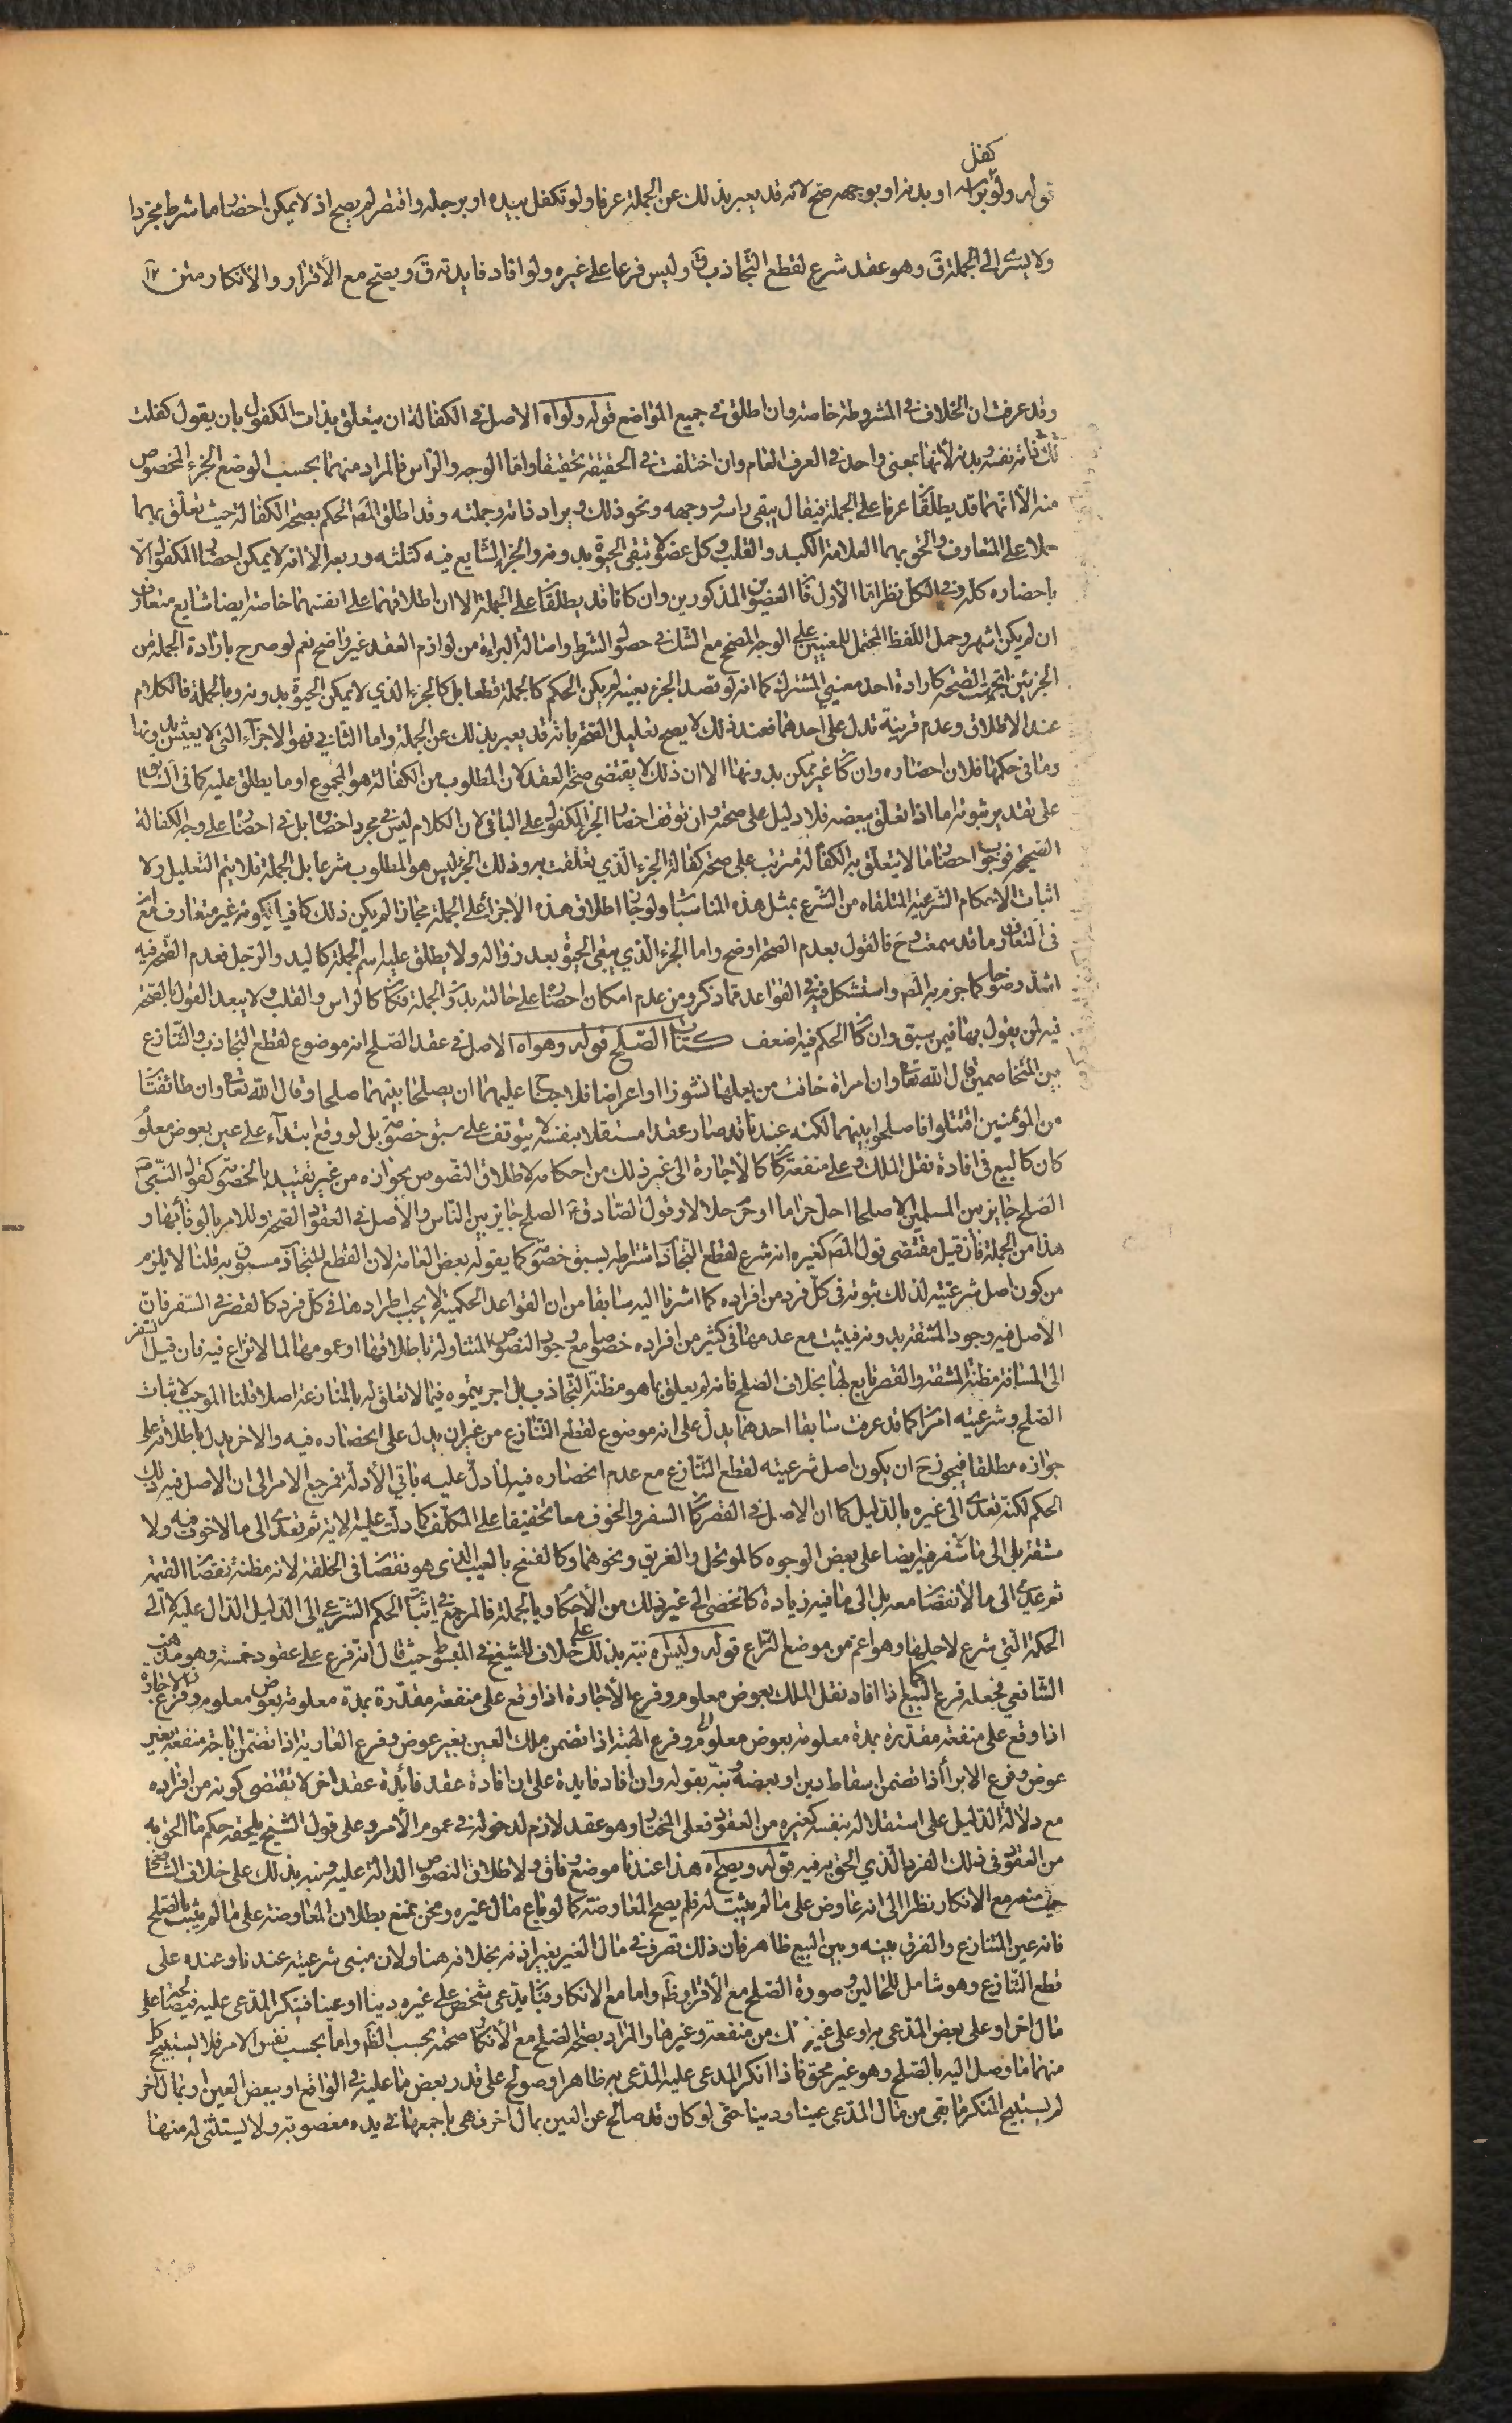 كفل
قوله ولو براسه او بدنه او بوجهه صح لانه قد يعبر بذلك عن الجملة عرفا ولو تكفل بيده او برجله واقتصر لم يصح اذ لا يمكن احضار ما شرط مجردا
ولا يسرى الى الجملة ق وهو عقد شرع لقطع التجاذب ق وليس فرعا على غيره ولو افاد فايدته ق ويصح مع الاقرار والانكار متن
وقد عرفت ان الخلاف فى المشروطة خاصة وان اطلق فى جميع المواضع قوله ولو اه الاصل فى الكفالة ان يتعلق بذات المكفول بان يقول كفلت
لك فلانا نفسه وبدنه لانها بمعنى واحد فى العرف العام وان اختلفت فى الحقيقة تحقيقا واما الوجه والراس فالمراد منهما بحسب الوضع الجزء المخصوص
منه الا انهما قد يطلقان عرفا على الجملة فيقال يبقى راسه ووجهه ونحو ذلك ويراد ذاته وجملته وقد اطلق المص الحكم بصحة الكفالة حيث تعلق بهما
حملا على المتعارف والحق بهما العلامة الكبد والقلب وكل عضو لا تبقى الحيوة بدونه والجزء الشايع فيه كثلثه وربعه الا انه لا يمكن احضار المكفول الا
باحضاره كله وفى الكل نظر اما الاول فان العضوين المذكورين وان كانا قد يطلقان على الجملة الا ان اطلاقهما على انفسهما خاصة ايضا شايع متعارف
ان لم يكن اشهر وحمل اللفظ المحتمل للمعنيين على الوجه المصحح مع الشك فى حصول الشرط واصالة البراءة من لوازم العقد غير واضح نعم لو صرح بارادة الجملة من
الجزئين اتجهت الصحة كارادة احد معنيي المشترك كما انه لو قصد الجزء بعينه لم يكن الحكم كالجملة قطعا بل كالجزء الذي لا يمكن الحيوة بدونه وبالجملة فالكلام
عند الاطلاق وعدم قرينة تدل على احدهما فعند ذلك لا يصح تعليل الصحة بانه قد يعبر بذلك عن الجملة واما الثانى فهو الاجزاء التى لا يعيش بدونها
وما فى حكمها فلان احضاره وان كان غير ممكن بدونها الا ان ذلك لا يقتضى صحة العقد لان المطلوب من الكفالة هو المجموع او ما يطلق عليه كما فى السابق
على تقدير ثبوته اما اذا تعلق ببعضه فلا دليل على صحته وان توقف احضار الجزء المكفول على الباقى لان الكلام ليس فى مجرد احضاره بل فى احضاره على وجه الكفالة
الصحيحة فوجوب احضار ما لا يتعلق به الكفالة مترتب على صحة كفالة الجزء الذي تعلقت به وذلك الجزء ليس هو المطلوب شرعا بل الجملة فلا يتم التعليل ولا
اثبات الاحكام الشرعية المتلقاه من الشرع بمثل هذه المناسبات ولو جاز اطلاق هذه الاجزاء على الجملة مجازا لم يكن ذلك كافيا لكونه غير متعارف مع
فى المتعارف ما قد سمعت وح فالقول بعدم الصحة اوضح واما الجزء الذي يبقى الحيوة بعد زواله ولا يطلق عليه اسم الجملة كاليد والرجل فعدم الصحة فيه
اشد وضوحا كما جزم به المص واستشكل فيه فى القواعد مما ذكر ومن عدم امكان احضاره على حالته بدون الجملة فكان كالراس والقلب ولا يبعد القول بالصحة
فيه لمن يقول بها فيمن سبق وان كان الحكم فيه اضعف كتاب الصلح قوله وهو اه الاصل فى عقد الصلح انه موضوع لقطع التجاذب والتنازع
بين المتخاصمين قال الله تعالى وان امراة خافت من بعلها نشوزا او اعراضا فلا جناح عليهما ان يصلحا بينهما صلحا وقال الله تعالى وان طائفتان
من المؤمنين اقتتلوا فاصلحوا بينهما لكنه عندنا قد صار عقدا مستقلا بنفسه لا يتوقف على سبق خصومة بل لو وقع ابتداء على عين بعوض معلوم
كان كالبيع فى افادة نقل الملك وعلى منفعة كان كالاجارة الى غير ذلك من احكامه لاطلاق النصوص بجوازه من غير تقييد بالخصومة كقول النبى ص
الصلح جايز بين المسلمين الا صلحا احل حراما او حرم حلالا وقول الصادق ع الصلح جايز بين الناس والاصل فى العقود الصحة وللامر بالوفاء بها و
هذا من الجملة فان قيل مقتضى قول المص كغيره انه شرع لقطع التجاذب اشتراطه بسبق خصومة كما يقوله بعض العامة لان القطع للتجاذب مسبوق به قلنا لا يلزم
من كون اصل شرعيته لذلك ثبوته فى كل فرد من افراده كما اشرنا اليه سابقا من ان القواعد الحكمية لا يجب اطرادها فى كل فرد كالقصر فى السفر فان
الاصل فيه وجود المشقة بدونه فيثبت مع عدمها فى كثير من افراده خصوصا مع وجود النصوص المتناولة باطلاقها او عمومها لما لا نزاع فيه فان قيل السفر
الى المسافة مظنة المشقة والقصر تابع لها بخلاف الصلح فانه لم يعلق بما هو مظنة التجاذب بل اجريتموه فيما لا تعلق له بالمنازعة اصلا قلنا الموجب لاثبات
الصلح وشرعيته امران كما قد عرفت سابقا احدهما يدل على انه موضوع لقطع التنازع من غير ان يدل على انحصاره فيه والاخر يدل باطلاقه على
جوازه مطلقا فيجوز ح ان يكون اصل شرعيته لقطع التنازع مع عدم انحصاره فيه لما دل عليه باقي الادلة فمرجع الامر الى ان الاصل فيه ذلك
الحكم لكنه تعدى الى غيره بالدليل كما ان الاصل فى القصر كان السفر والخوف معا تخفيفا على المكلف كما دلت عليه الاية ثم تعدى الى ما لا خوف فيه ولا
مشقة بل الى ما لا سفر فيه ايضا على بعض الوجوه كالموتحل والغريق ونحوهما وكالفسخ بالعيب الذى هو نقصان فى الخلقة لانه مظنة نقصان القيمة
ثم عدى الى ما لا نقصان معه بل الى ما فيه زيادة كالخصى الى غير ذلك من الاحكام وبالجملة فالمرجع فى اثبات الحكم الشرعى الى الدليل الدال عليه لا الى
الحكمة التى شرع لاجلها وهو اعم من موضع النزاع قوله وليس اه نبه بذلك على خلاف الشيخ فى المبسوط حيث قال انه فرع على عقود خمسة وهو مذهب
الشافعي فجعله فرع البيع اذا افاد نقل الملك بعوض معلوم وفرع الاجارة اذا وقع على منفعة مقدرة بمدة معلومة بعوض معلوم وفرع
اذا وقع على منفعة مقدرة بمدة معلومة بعوض معلوم وفرع الهبة اذا تضمن ملك العين بغير عوض وفرع العارية اذا تضمن اباحة منفعة بغير
عوض وفرع الابراء اذا تضمن اسقاط دين او بعضه ونبه بقوله وان افاد فايدة على ان افادة عقد فائدة عقد اخر لا تقتضى كونه من افراده
مع دلالة الدليل على استقلاله بنفسه كغيره من العقود فعلى المختار وهو عقد لازم لدخوله فى عموم الامر وعلى قول الشيخ يلحقه حكم ما الحق به
من العقود فى ذلك الفرد الذي الحق به فيه قوله ويصح اه هذا عندنا موضع وفاق ولاطلاق النصوص الدالة عليه ونبه بذلك على خلاف الشافعى
حيث منعه مع الانكار نظرا الى انه عاوض على ما لم يثبت له فلم يصح المعاوضة كما لو باع مال غيره ونحن نمنع بطلان المعاوضة على ما لم يثبت بالصلح
فانه عين المتنازع والفرق بينه وبين البيع ظاهر فان ذلك تصرف فى مال الغير بغير اذنه بخلافه هنا ولان مبنى شرعيته عندنا وعنده على
قطع التنازع وهو شامل للحالين وصورة الصلح مع الاقرار ظ واما مع الانكار فبان يدعى شخص على غيره دينا او عينا فينكر المدعى عليه فيصالحه على
مال اخر او على بعض المدعى به او على غير ذلك من منفعة وغيرها والمراد بصحة الصلح مع الانكار صحته بحسب الظ واما بحسب نفس الامر فلا يستبيح كل
منهما ما وصل اليه بالصلح وهو غير محق فاذا انكر المدعى عليه المدعى به ظاهرا وصولح على قدر بعض ما عليه فى الواقع او ببعض العين او بمال اخر
لم يستبح المنكر ما بقى من مال المدعى عينا ودينا حتى لو كان قد صالح عن العين بمال اخر فهى باجمعها فى يده مغصوبة ولا يستثنى له منها